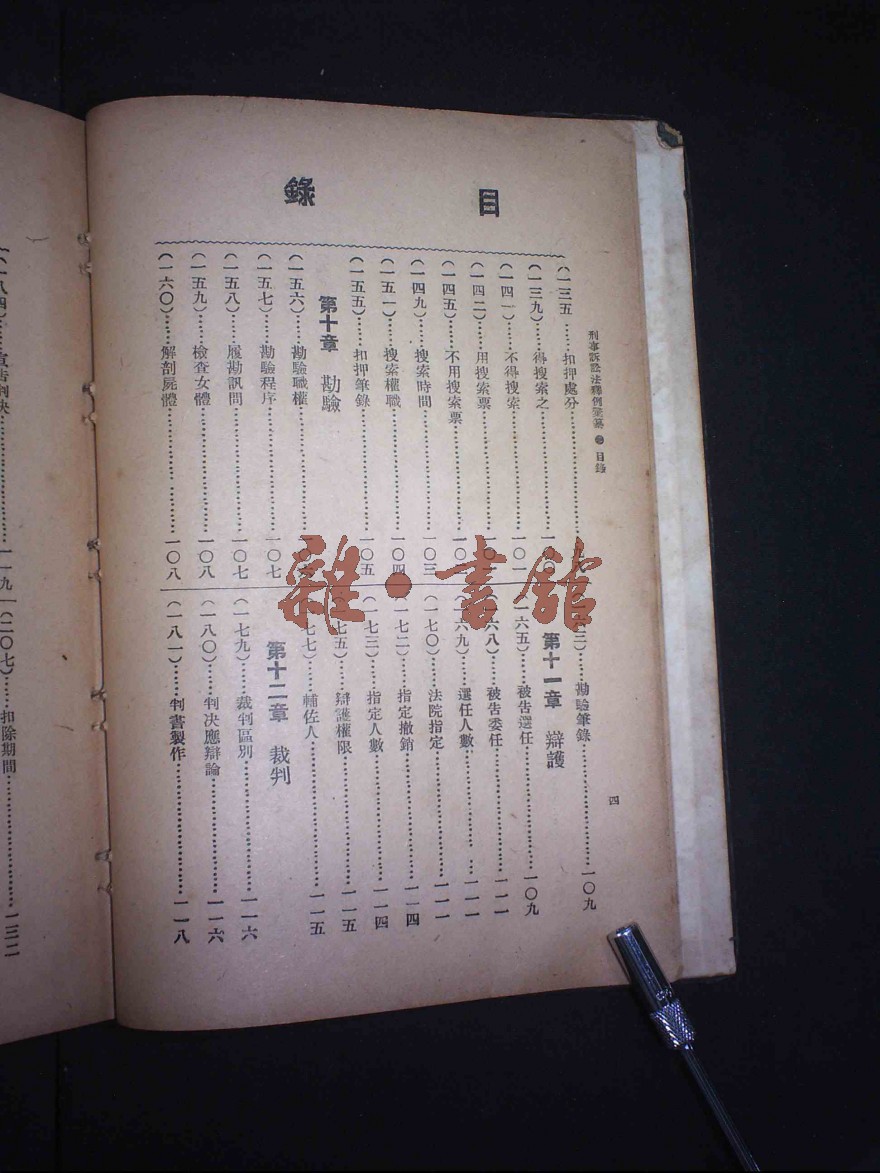 目錄
刑事訴訟法釋例彙纂 目錄
四
(一三五……扣押處分……
(一三九)……得搜索之……一〇〇
(一四一)……不得搜索……一〇一
(一四二)……用搜索票……
(一四五)……不用搜索票……
(一四九)……搜索時間……一〇三
(一五一)……搜索權職……一〇四
(一五五)……扣押筆錄……一〇五
第十章 勘驗
(一五六)……勘驗職權……
(一五七)……勘驗程序……一〇七
(一五八)……履勘訊問……一〇七
(一五九)……檢查女體……一〇八
(一六〇)……解剖屍體……一〇八
……勘驗筆錄……一〇九
第十一章 辯護
(一六五)……被告選任……一〇九
(一六八)……被告委任……一一一
(一六九)……選任人數……一一一
(一七〇)……法院指定……一一一
(一七二)……指定撤銷……一一四
(一七三)……指定人數……一一四
七五)……辯護權限……一一五
七七)……輔佐人……一一五
第十二章 裁判
(一七九)……裁判區別……一一六
(一八〇)……判決應辯論……一一六
(一八一)……判書製作……一一八
(一八四)……宣告判決……一一九
(二〇七)……扣除期間……一三二
雜·書館